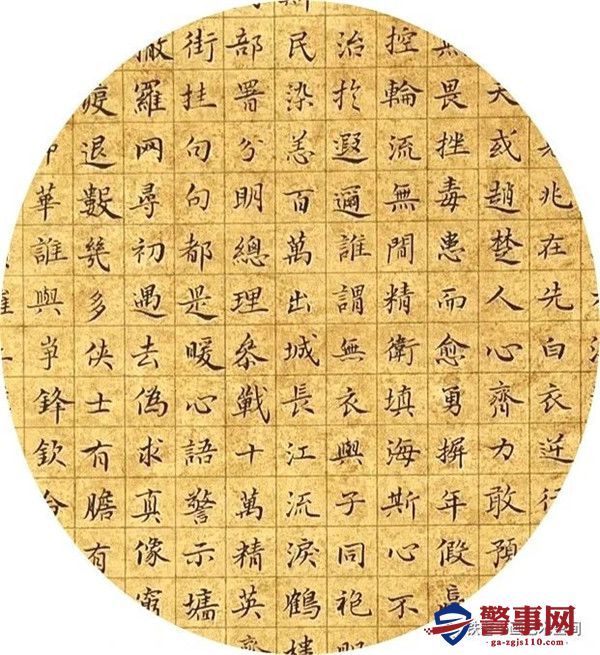 兆在先白衣逆行
天或趙楚人心齊力敢預
無畏挫毒患而愈勇摒年假
控輪流無間精衛填海斯心不
治於遐邇誰謂無衣與子同袍
民染恙百萬出城長江流淚鶴
部署分明總理參戰十萬精英
街挂句句都是暖心語警示墻
羅网尋初遇去偽求真像窮
疫退數幾多俠士有膽有
華誰與爭鋒欽
警事网
ga-zgjs110.com